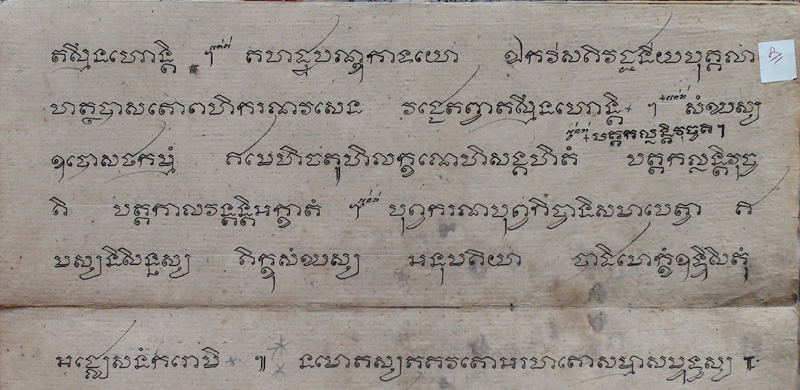 តស្មឹនហោន្តិ ៗ គហដ្ឋបណ្ឌកាទយោ ឯកវីសតិវជ្ជនីយបុគ្គលា
ហត្ថបាសតោពហិករណវសេន វជ្ជេតព្វាតស្មឹនហោន្តិ ៗ សំឃស្ស
បត្តកល្លន្តិវុច្ចតិៗ
ឧបោសថកម្មំ ឥមេហិចតូហិលក្ខណេហិសង្គហិតំ បត្តកល្លន្តិវុច្ច
តិ បត្តកាលវន្តន្តិអក្ខាតំ ៗ បុព្វករណបុព្វកិច្ចានិសមាបេត្វា ឥ
មស្សនិសិន្នស្ស ភិក្ខុសំឃស្ស អនុមតិយា បាដិមោក្ខំឧទ្ទិសិតុំ
អជ្ឈេសនំករោមិ ៕ នមោតស្សភគវតោអរហតោសម្មាសម្ពុទ្ធស្ស ៕